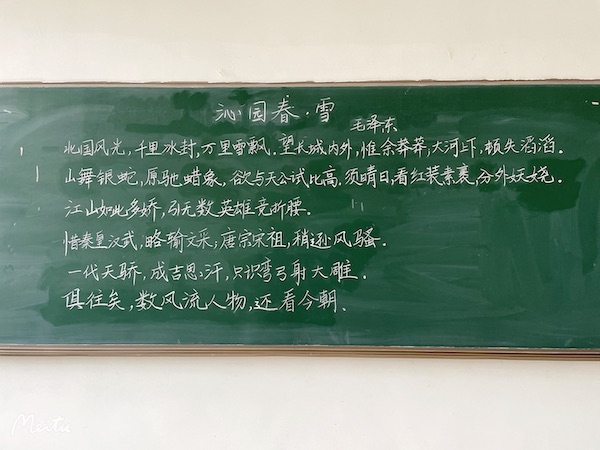 沁园春·雪
毛泽东
北国风光,千里冰封,万里雪飘.望长城内外,惟余莽莽;大河上下,顿失滔滔.
山舞银蛇,原驰蜡象,欲与天公试比高.须晴日,看红装素裹,分外妖娆.
江山如此多娇,引无数英雄竞折腰.
惜秦皇汉武,略输文采;唐宗宋祖,稍逊风骚.
一代天骄,成吉思汗,只识弯弓射大雕.
俱往矣,数风流人物,还看今朝.
Meitu